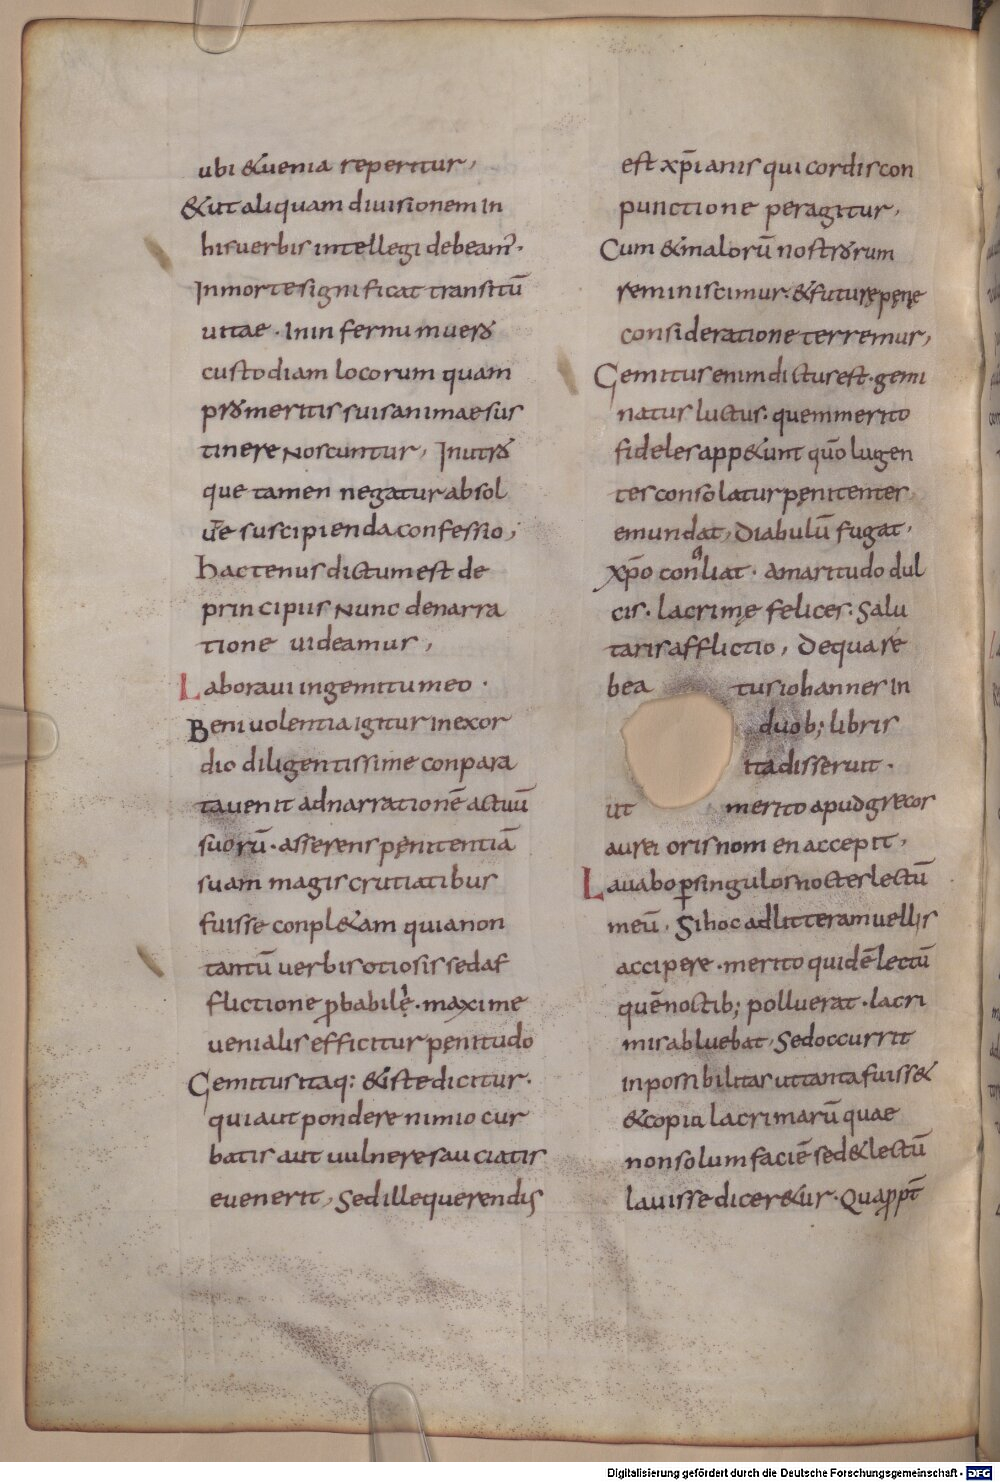 ubi &uenia reperitur,
&ut aliquam diuisionem in
his uerbis intellegi debeam᷒·
In morte significat transitū
uitae · In infernum uero
custodiam locorum quam
pro meritis suis animae sus
tinere noscuntur, In utro
que tamen negatur absol
ute suscipienda confessio;
hactenus dictum est de
principiis Nunc de narra
tione uideamus,
Laboraui in gemitu meo ·
Beniuolentia igitur in exor
dio diligentissime conpara
ta uenit ad narrationē actuū
suorū · asserens pęnitentiā
suam magis cruciatibus
fuisse conpl&am quia non
tantū uerbis otiosis sed af
flictione ꝓbabilę · maxime
uenialis efficitur pęnitudo
Gemitus itaq: & iste dicitur ·
qui aut pondere nimio cur
batis aut uulnere sauciatis
euenerit, Sed ille querendus
est xp̄ianis qui cordis con
punctione peragitur,
Cum & malorū nostrorum
reminiscimur · & futurę pęnę
consideratione terremur,
Gemitus enim dictus est · gemi
natus luctus · quem merito
fideles app&unt quō lugen
tes consolatur pęnitentes
emundat, Diabulū fugat,
xp̄o conciliat · amaritudo dul
cis · lacrimę felices · Salu
taris afflictio, De qua re
beatus iohannes in
duob; libris
ita disseruit ·
ut merito apud grecos
aurei oris nomen accepit,
Lauabo ꝑ singulos noctes lectū
meū, Si hoc ad litteram uellis
accipere · merito quidē lectū
quē noctib; polluerat · lacri
mis abluebat, Sed occurrit
inpossibilitas ut tanta fuiss&
& copia lacrimarū quae
non solum faciē sed & lectū
lauisse dicer&ur · Quapp̄t
Digitalisierung gefördert durch die Deutsche Forschungsgemeinschaft - DFG